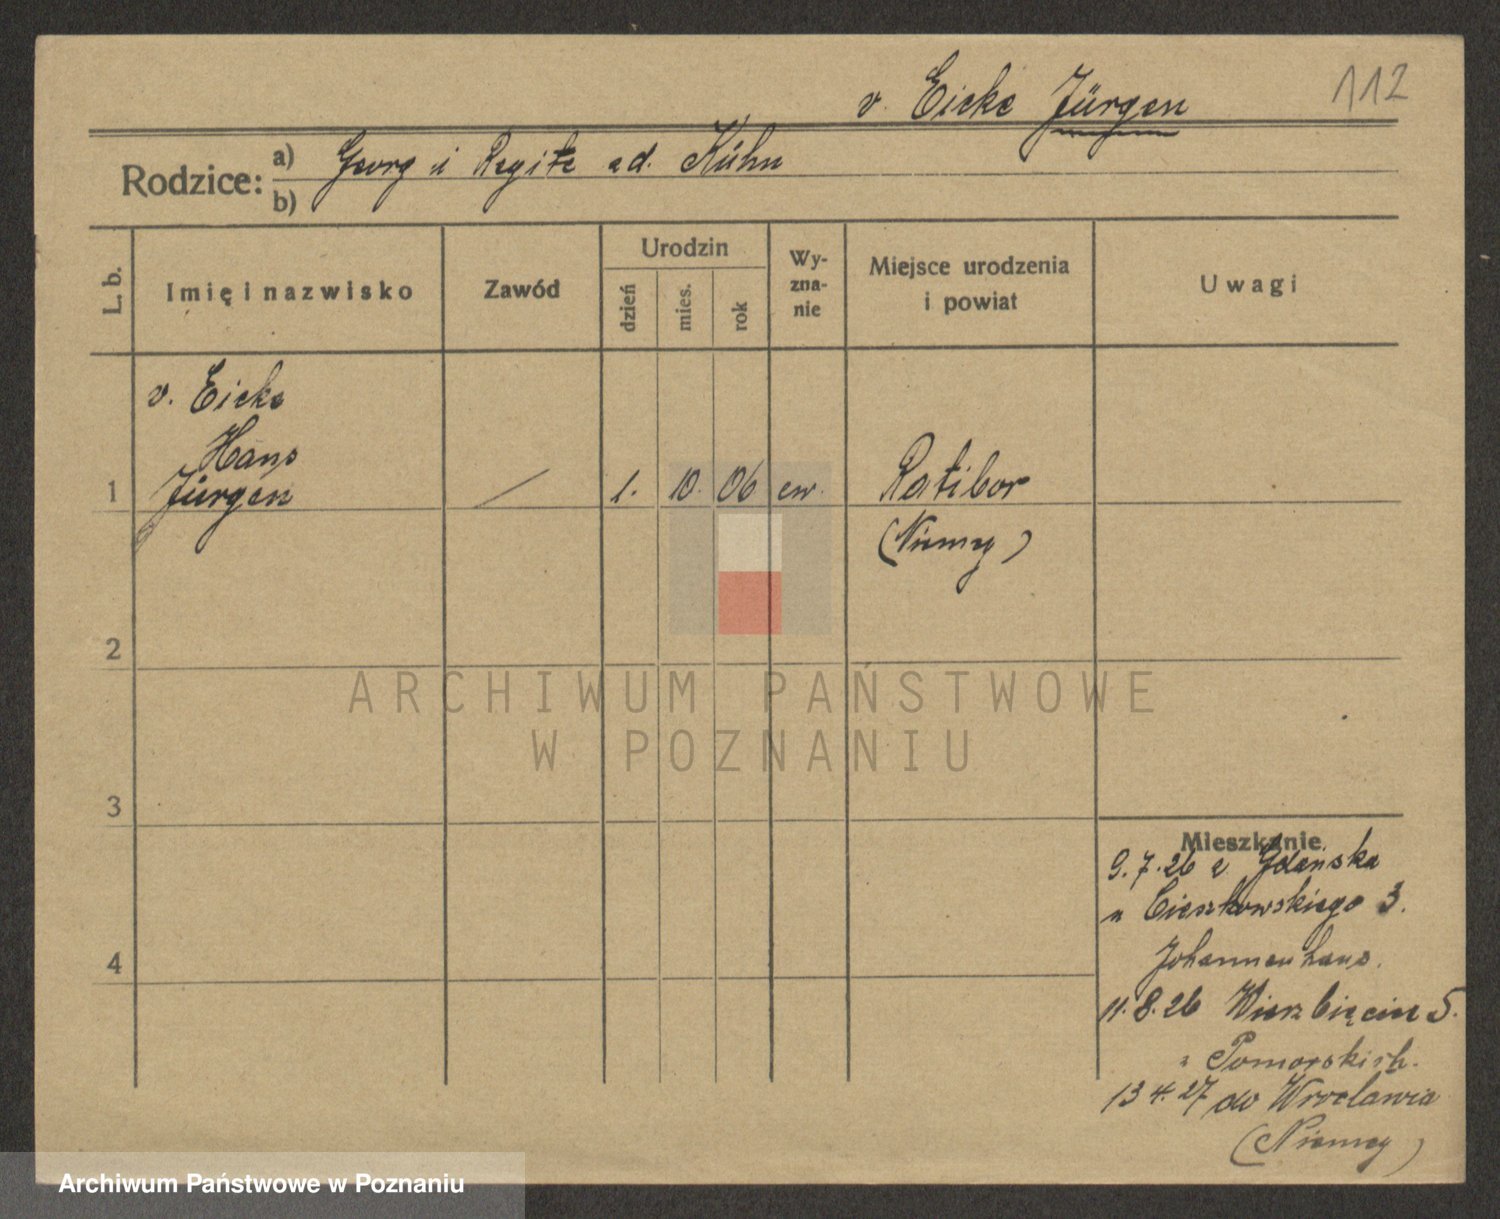 v. Eicke Jürgen
112
Rodzice: a) Georg i Regite zd. Kühn
b)
L. b.
Imię i nazwisko
Zawód
Urodzin
dzień
mies.
rok
Wy-
zna-
nie
Miejsce urodzenia
i powiat
Uwagi
v. Eicke
Hans
1 Jürgen / 1. 10. 06 ew. Ratibor
(Niemcy)
2
3
4
ARCHIWUM PAŃSTWOWE
W POZNANIU
Mieszkanie
9.7.26 z Gdańska
u Cieszkowskiego 3.
Johannenhaus.
11.8.26 Wierzbięcice 5.
Pomorskich.
13 4. 27 do Wrocławia
(Niemcy)
Archiwum Państwowe w Poznaniu